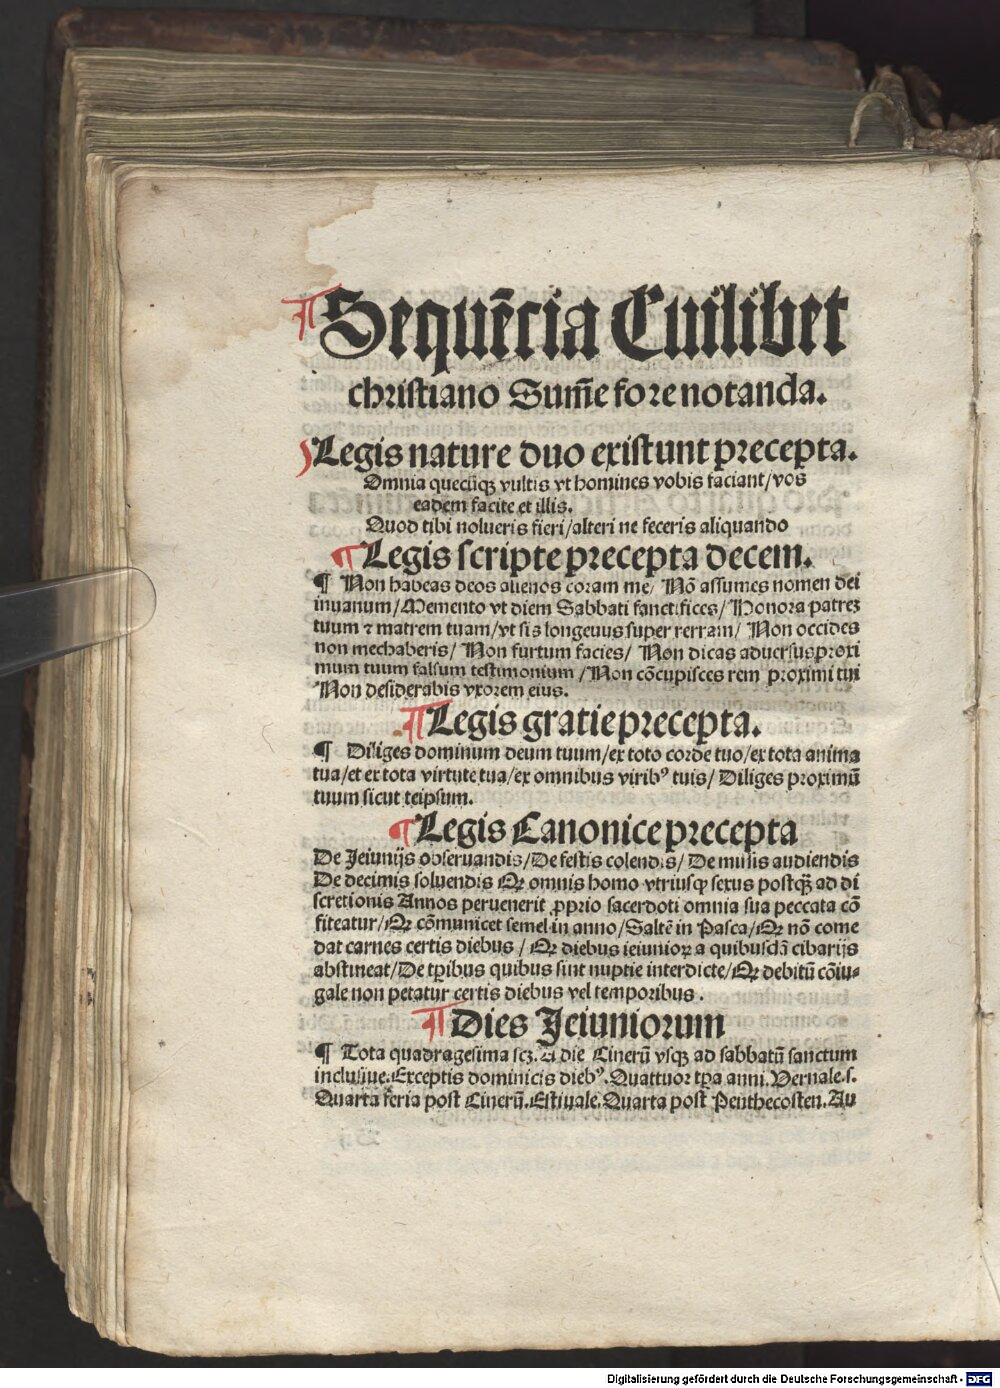 ¶ Sequẽcia Cuilibet
christiano Sum̃e fore notanda.
Legis nature duo existunt precepta.
Omnia quecũqȝ vultis vt homines vobis faciant/vos
eadem facite et illis.
Quod tibi nolueris fieri/alteri ne feceris aliquando
¶ Legis scripte precepta decem.
¶ Non habeas deos alienos coram me/ Nõ assumes nomen dei
inuanum/Memento vt diem Sabbati sanctifices/ Honora patreȝ
tuum ⁊ matrem tuam/vt sis longeuus super terram/ Non occides
non mechaberis/ Non furtum facies/ Non dicas aduersus proxi
mum tuum falsum testimonium /Non cõcupisces rem proximi tui
Non desiderabis vxorem eius.
¶ Legis gratie precepta.
¶ Diliges dominum deum tuum/ex toto corde tuo/ex tota anima
tua/et ex tota virtute tua/ex omnibus viribꝰ tuis/ Diliges proximũ
tuum sicut teipsum.
¶ Legis Canonice precepta
De Jeiunijs obseruandis/De festis colendis/ De missis audiendis
De decimis soluendis Qꝛ omnis homo vtriusqꝫ sexus postqꝫ̃ ad di
scretionis Annos peruenerit ꝓprio sacerdoti omnia sua peccata cõ
fiteatur/Qꝛ cõmunicet semel in anno/Saltẽ in Pasca/Qꝛ nõ come
dat carnes certis diebus / Qꝛ diebus ieiunioꝝ a quibusdã cibarijs
abstineat/De tꝑibus quibus sint nuptie interdicte/Qꝛ debitũ cõiu⸗
gale non petatur certis diebus vel temporibus .
¶ Dies Jeiuniorum
¶ Tota quadragesima scȝ. A die Cinerũ vsqȝ ad sabbatũ sanctum
inclusiue. Exceptis dominicis diebꝰ. Quattuor tꝑa anni. Vernale.s.
Quarta feria post Cinerũ. Estiuale. Quarta post Penthecosten. Au
Digitalisierung gefördert durch die Deutsche Forschungsgemeinschaft - DFG